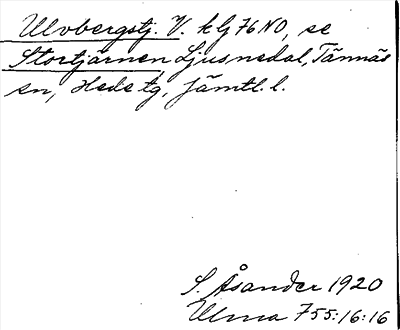 Ulvbergstj. V. kG 76 NO, se
Stortjärnen, Ljusnedal, Tännäs
sn, Hede tg, Jämtl. l.
S. Åsander 1920
Ulma 755:16:16